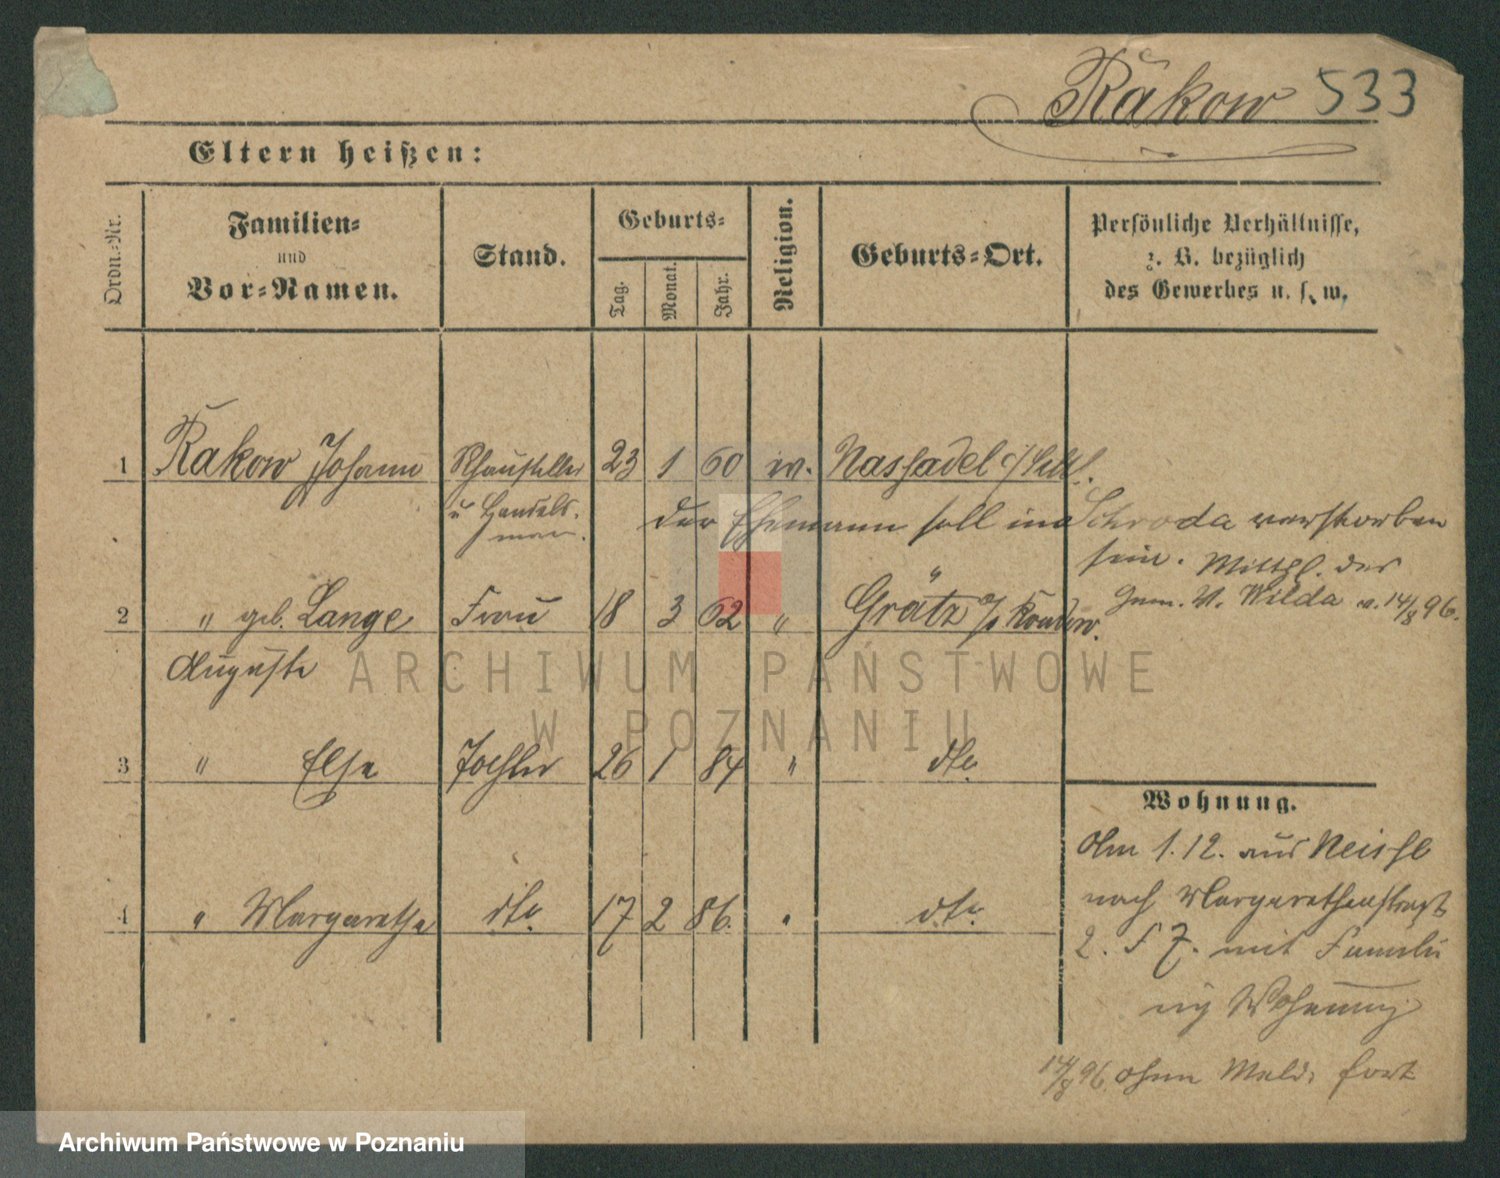 Rakow 533
Eltern heißen:
Ordn.-Nr.
Familien-
und
Vor-Namen.
Stand.
Geburts-
Tag.
Monat.
Jahr.
Religion.
Geburts-Ort.
Persönliche Verhältnisse,
z. B. bezüglich
des Gewerbes u. s. w.
1 Rakow Johann 23 1 60 ev. Nassadel
u Handels-
mann.
der Ehemann soll in Schroda verstorben
sein. Mittgl. der
Gem. V. Wilda v. 14/8 96.
2 " geb. Lange Frau 18 3 62 " Grätz
Auguste
3 " Else Tochter 26 1 84 " dto
4 " Margarethe dto 17 2 86. " dto
Wohnung.
Am 1.12. aus Neisse
nach Margarethenstraße
2. mit Familie
in Wohnung
14/8 96. ohne Meld. fort
ARCHIWUM PAŃSTWOWE
W POZNANIU
Archiwum Państwowe w Poznaniu